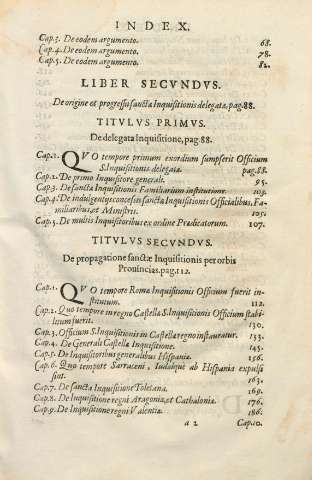 INDEX.
Cap.3. De eodem argumento. 68.
Cap.4. De eodem argumento. 78.
Cap.5. De eodem argumento. 82.
LIBER SECVNDVS.
De origine et progressu sanctæ Inquisitionis delegatæ, pag.88.
TITVLVS PRIMVS.
De delegata Inquisitione, pag.88.
Cap.1. QVO tempore primum exordium sumpserit Officium
S. Inquisitionis delegatæ. pag.88.
Cap.2. De primo Inquisitore generali. 95.
Cap.3. De sanctæ Inquisitionis Familiarium institutione. 103.
Cap.4. De indulgentijs concessis sanctæ Inquisitionis Officialibus, Fa-
miliaribus, et Ministris. 105.
Cap.5. De multis Inquisitoribus ex ordine Prædicatorum. 107.
TITVLVS SECVNDVS.
De propagatione sanctæ Inquisitionis per orbis
Prouincias, pag.112.
Cap.1. QVO tempore Romæ Inquisitionis Officium fuerit in-
stitutum. 112.
Cap.2. Quo tempore in regno Castellæ S. Inquisitionis Officium stabi-
litum fuerit. 130.
Cap.3. Officium S. Inquisitionis in Castellæ regno instauratur. 133.
Cap.4. De Generali Castellæ Inquisitione. 145.
Cap.5. De Inquisitoribus generalibus Hispaniæ. 156.
Cap.6. Quo tempore Sarraceni, Iudæique ab Hispania expulsi
sint. 163.
Cap.7. De sancta Inquisitione Toletana. 169.
Cap.8. De Inquisitione regni Aragoniæ, et Cathaloniæ. 176.
Cap.9. De Inquisitione regni Valentiæ. 186.
a 2 Cap.10.